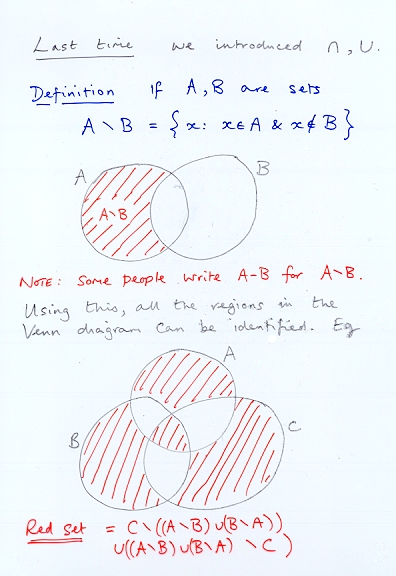 Last time we introduced ∩, ∪.
Definition If A, B are sets
A \ B = {x: x∈A & x∉B}
A
B
A\B
NOTE: Some people write A-B for A\B.
Using this, all the regions in the
Venn diagram can be identified. Eg
A
B
C
Red set = C\((A\B)∪(B\A))
∪((A\B)∪(B\A) \C)